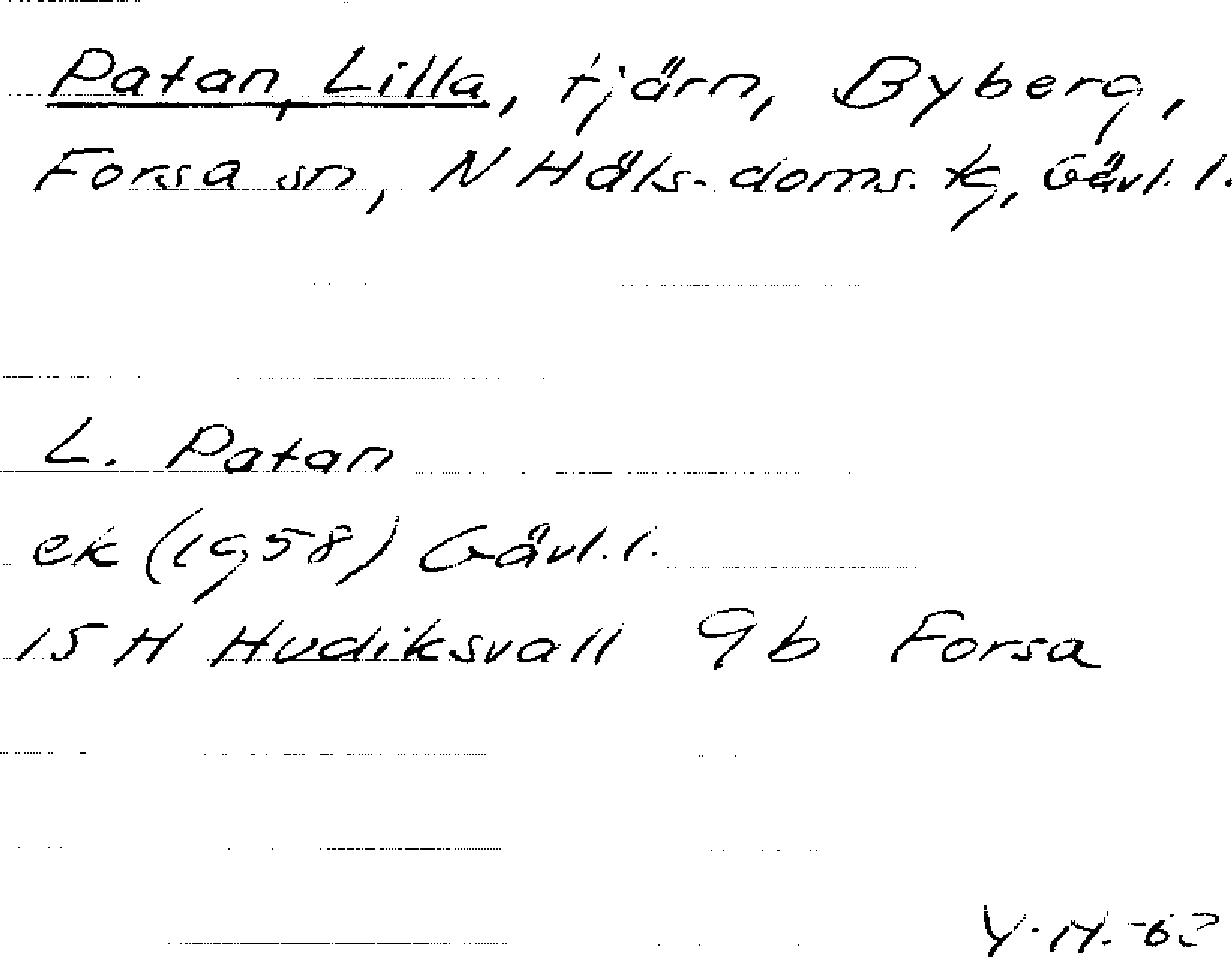 Patan, Lilla, tjärn, Byberg,
Forsa sn, N Häls. doms. tg, Gävl. l.
L. Patan
ek (1958) Gävl. l.
15 H Hudiksvall 9b Forsa
Y. H. -62